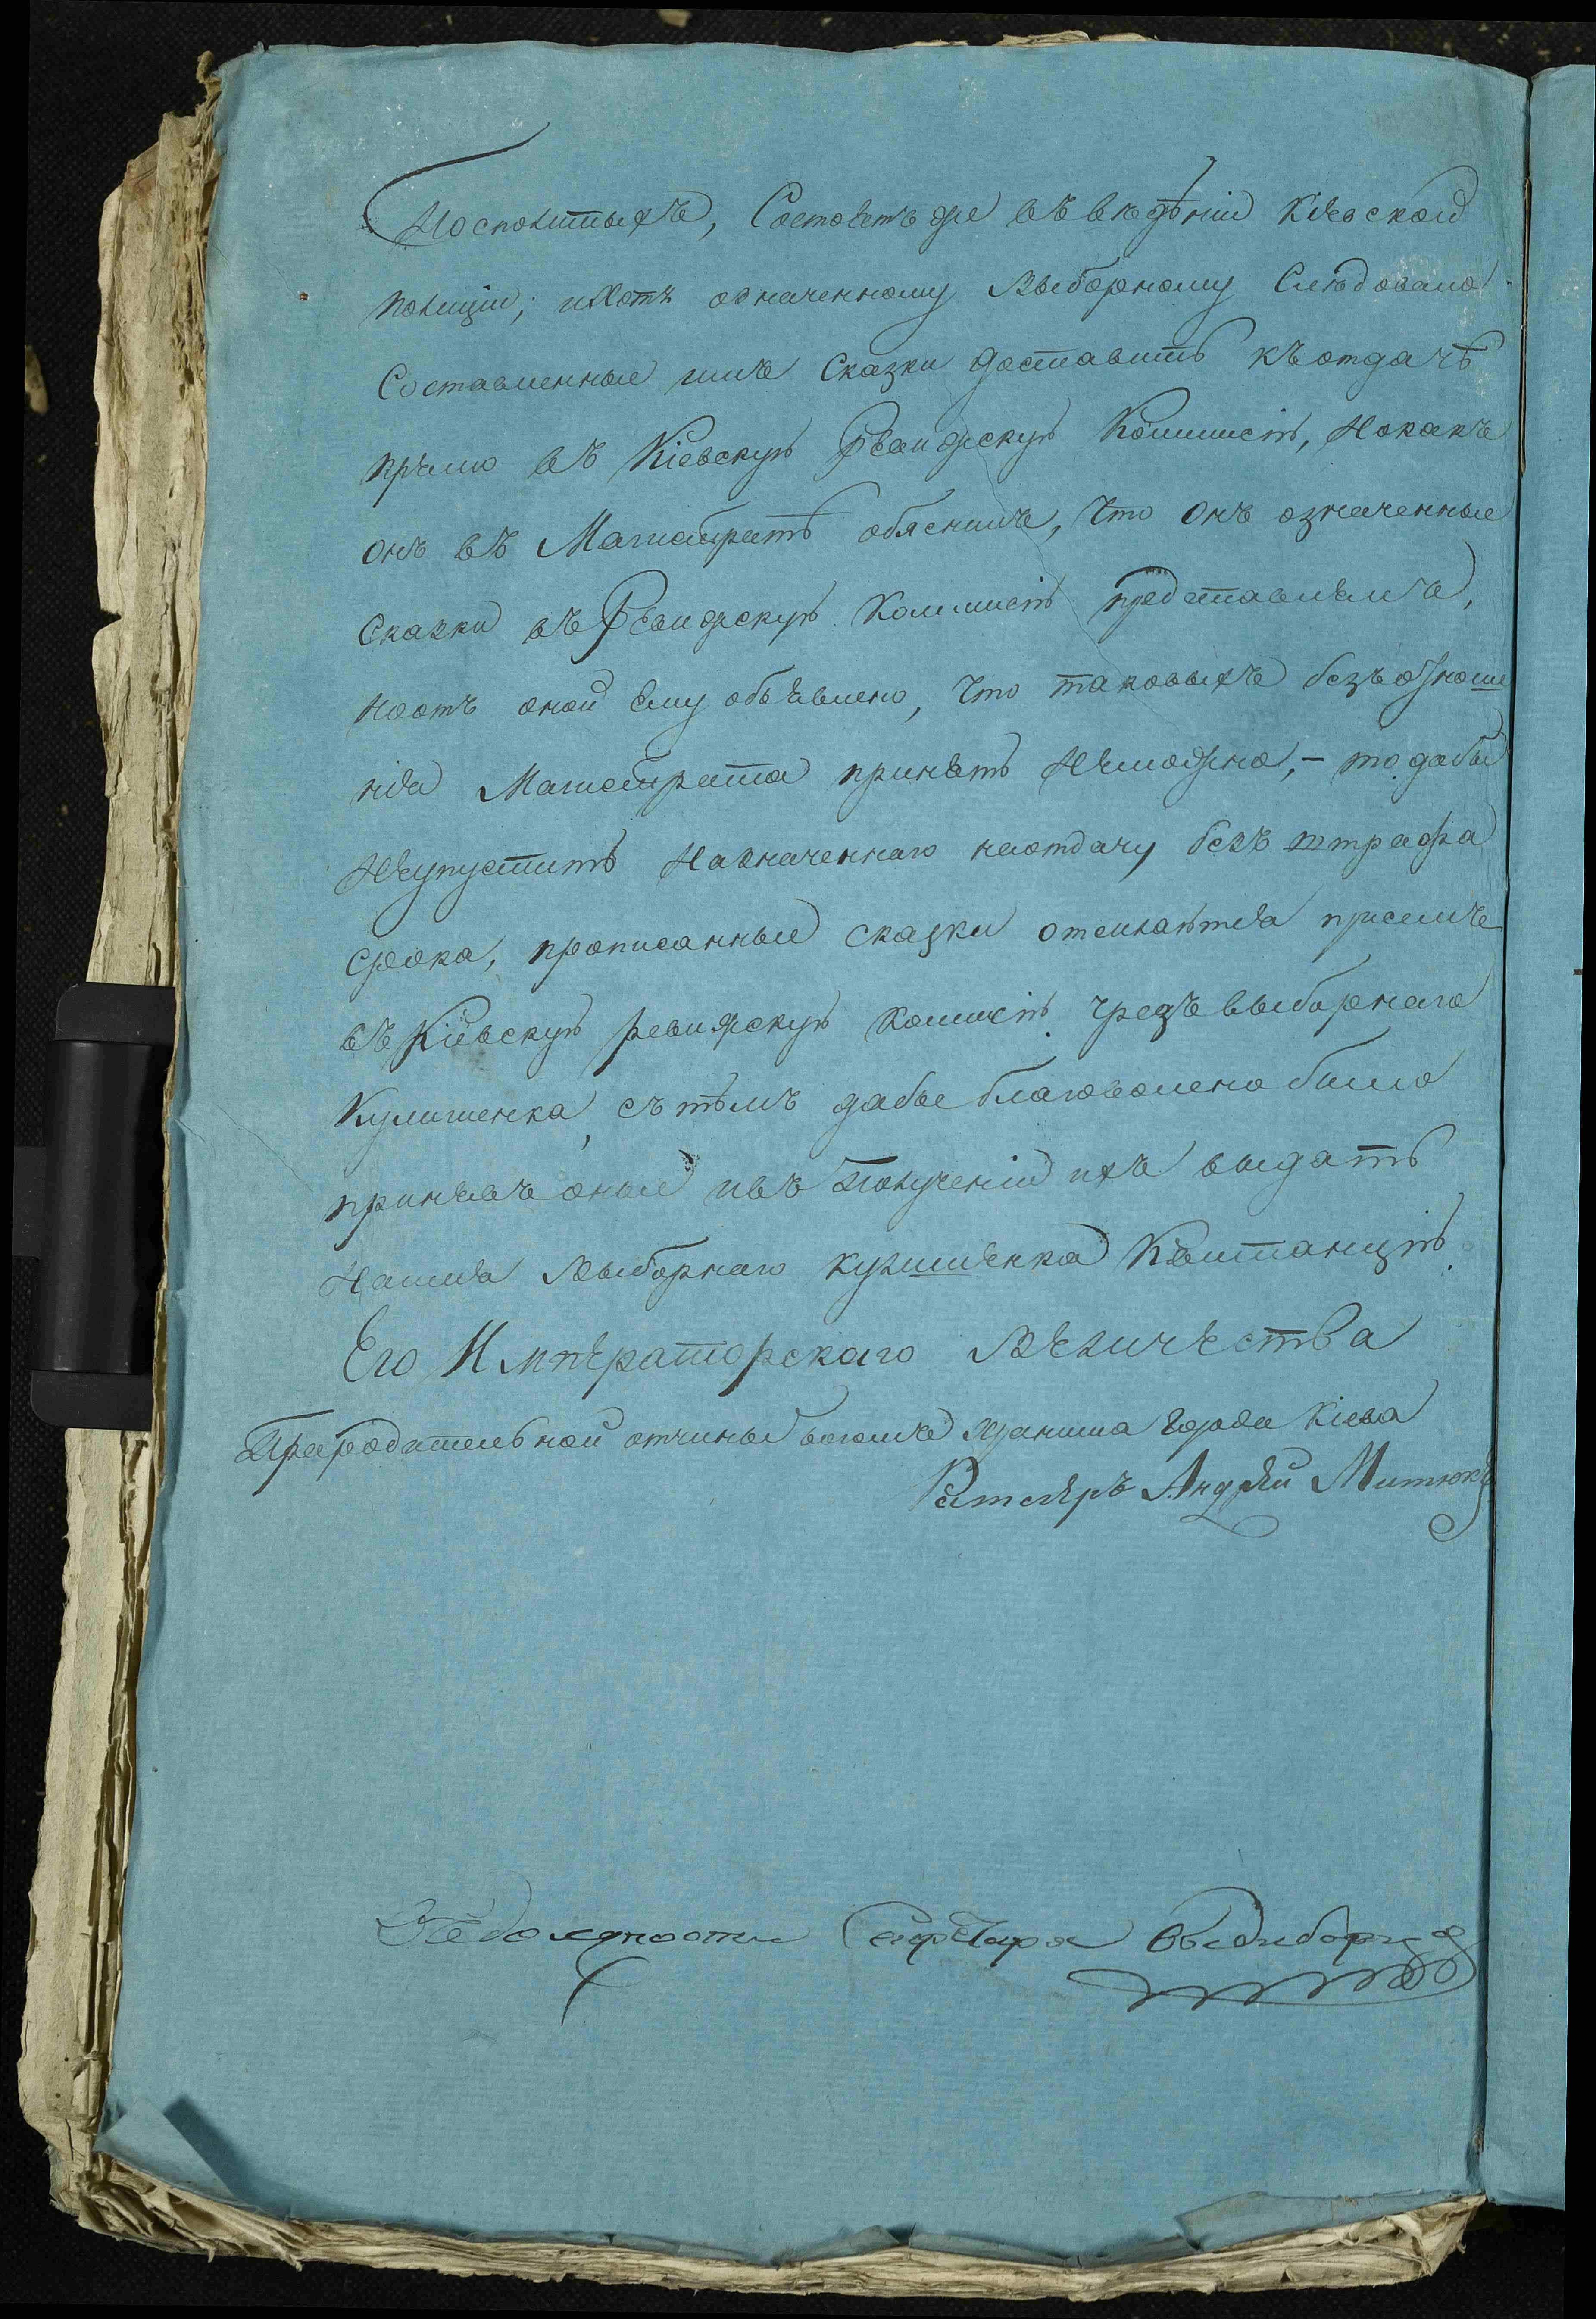 Посполитыхъ, Состоятъ же въ вѣдѣніи Кіевской
полиціи; и Хотя означенному Выборному Слѣдовало
Составленные имъ Сказки доставить къ отдачѣ
прямо въ Кіевскую Ревижскую Коммисію, Но какъ
онъ въ Магистратѣ обяснилъ, что онъ означенные
Сказки въ Ревижскую Коммисію представлялъ,
но отъ оной Ему объявлено, что таковыхъ безъ отноше
нія Магистрата принять Неможно, - то дабы
Неупустить Назначеннаго наотдачу безъ штрафа
срока, прописанные сказки отсилаются присемъ
въ Кіевскую ревижскую комисію чрезъ выборнаго
Кулишенка, съ тѣмъ дабы благоволено было
принявъ оные ивъ Полученіи ихъ выдать
Наимя Выборнаго кулишенка Квитанцію.
Его Императорскаго Величества
Прародительной отчины богомъ хранима Города Кіева
Ратсгеръ Андрей Митюкъ
Въ должности Секретаря